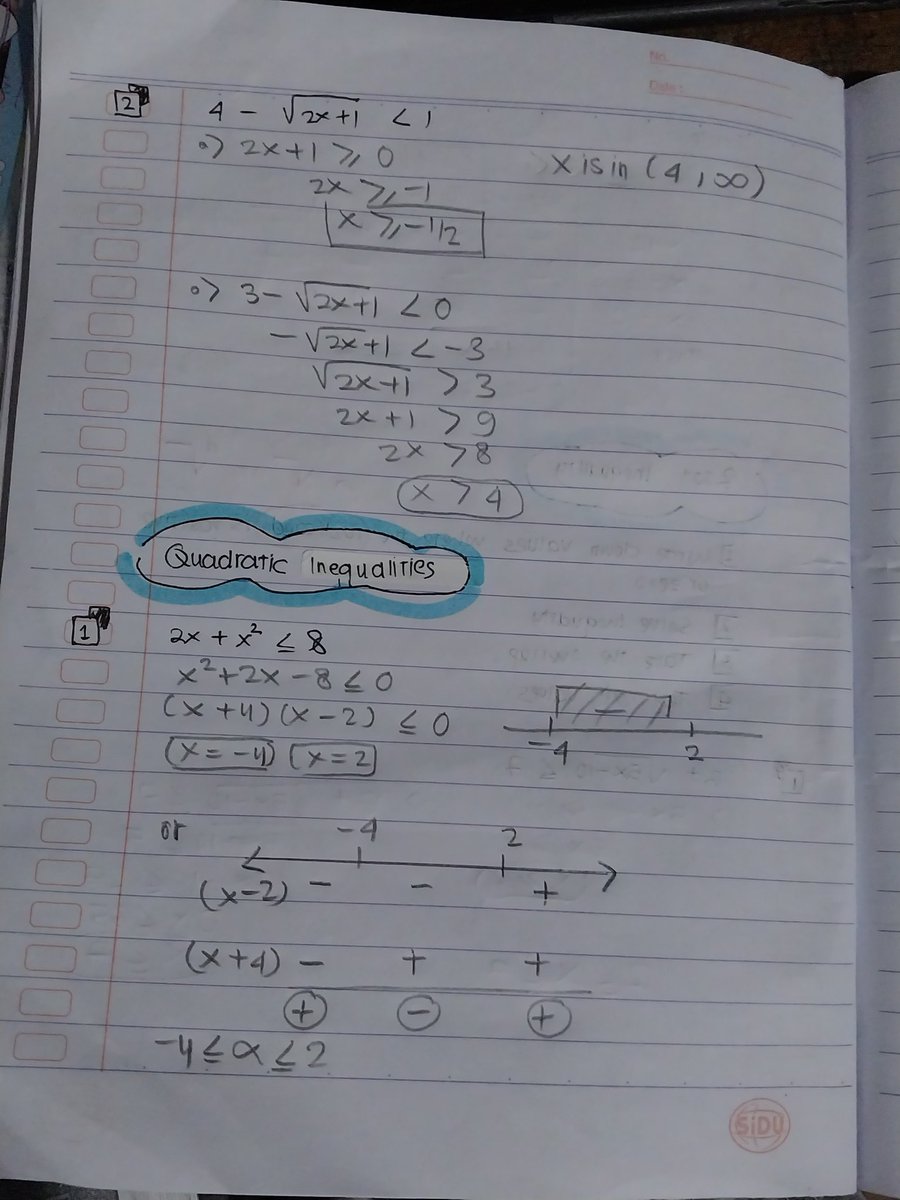 No.
Date:
2
4 - √2x+1 < 1
•> 2x+1 ≥ 0
x is in (4, ∞)
2x ≥ -1
x ≥ -1/2
•> 3 - √2x+1 < 0
-√2x+1 < -3
√2x+1 > 3
2x+1 > 9
2x > 8
x > 4
Quadratic Inequalities
1
2x + x² ≤ 8
x² + 2x - 8 ≤ 0
(x+4)(x-2) ≤ 0
x = -4 x = 2
-
-4 2
or
-4 2
(x-2) - - +
(x+4) - + +
+ - +
-4 ≤ x ≤ 2
SiDU